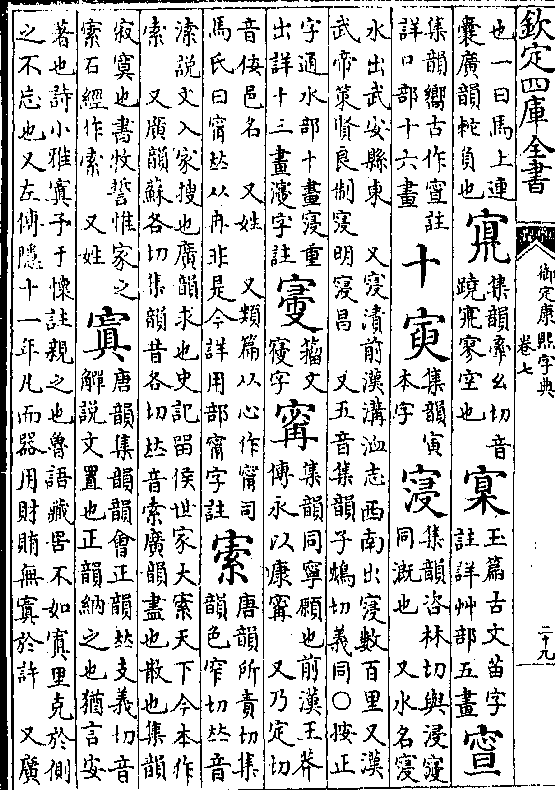 欽定四庫全書
御定康熙字典
卷七
二十九
也一曰馬上連
囊廣韻䡔負也
𡨕集韻牽幺切音
蹺𡨕寥空也
𡧱玉篇古文苗字
註詳艸部五畫
𡩀
集韻嚮古作𡩀註
詳口部十六畫
十
𡩟集韻寅
本字
寖集韻咨林切與浸𡫏
同漑也 又水名寖
水出武安縣東 又寖漬前漢溝洫志西南出寖數百里又漢
武帝策賢良制寖明寖昌 又五音集韻子鴆切義同○按正
字通水部十畫寖重
出詳十三畫𡫏字註
𡪢籀文
𡫏字
㝕集韻同寧願也前漢王莽
傳永以康㝕 又乃定切
音佞邑名 又姓 又類篇从心作寗司
馬氏曰寗𠀤从冉非是今詳用部甯字註
索唐韻所責切集
韻色窄切𠀤音
溹說文入家搜也廣韻求也史記留侯世家大索天下今本作
索 又廣韻蘇各切集韻昔各切𠀤音索廣韻盡也散也集韻
寂寞也書牧誓惟家之
索石經作索 又姓
寘唐韻集韻韻會正韻𠀤支義切音
解說文置也正韻納之也猶言安
著也詩小雅寘予于懷註親之也魯語藏罟不如寘里克於側
之不忘也又左傳隱十一年凡而器用財賄無寘於許 又廣